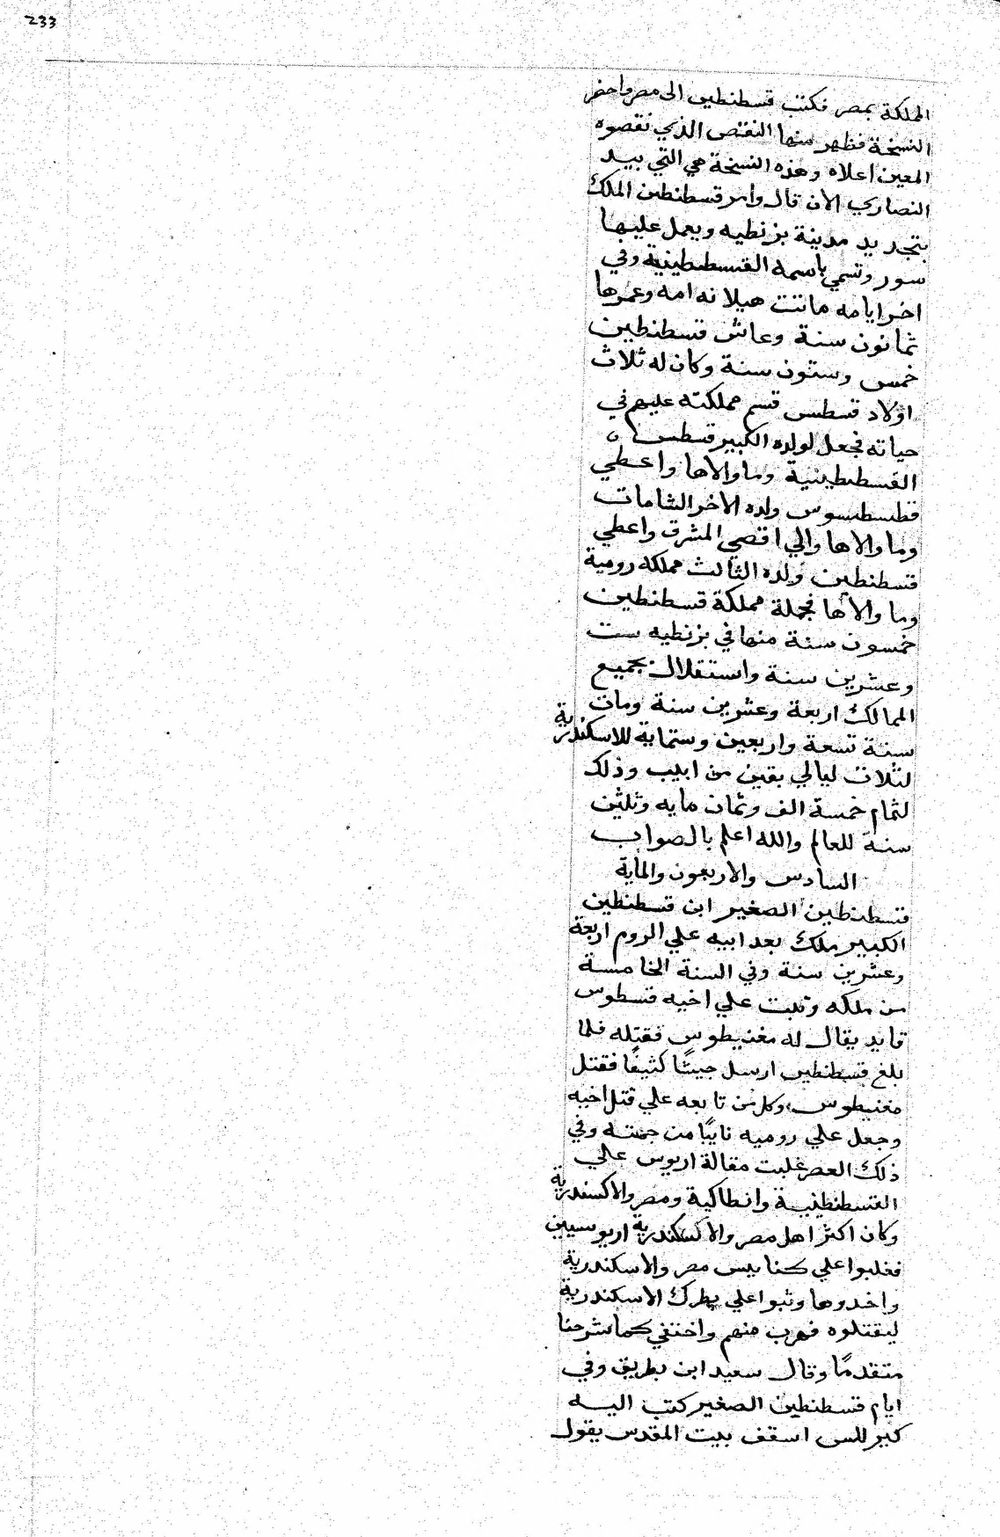 233
المملكة بمصر فكتب قسطنطين الى مصر واحضر
النسخة فظهر منها النقص الذي نقصوه
المعين اعلاه وهذه النسخة هي التي بيد
النصاري الان قال وامر قسطنطين الملك
بتجديد مدينة بزنطيه ويعمل عليها
سور وتسمي باسمه القسطنطينية وفي
اخر ايامه ماتت هيلانه امه وعمرها
ثمانون سنة وعاش قسطنطين
خمس وستون سنة وكان له ثلاث
اولاد قسطس قسم مملكته عليهم في
حياته فجعل لولده الكبير قسطس
القسطنطينية وما والاها واعطي
قطسطسوس ولده الاخر الشامات
وما والاها والي اقصي المشرق واعطي
قسطنطين ولده الثالث مملكه رومية
وما والاها فجملة مملكة قسطنطين
خمسون سنة منها في بزنطيه ست
وعشرين سنة واستقلال بجميع
الممالك اربعة وعشرين سنة ومات
سنة تسعة واربعين وستماية للاسكندرية
لثلاث ليالي بقين من ابيب وذلك
لتمام خمسة الف وثمان مايه وثلثين
سنة للعالم والله اعلم بالصواب
السادس والاربعون والماية
قسطنطين الصغير ابن قسطنطين
الكبير ملك بعد ابيه علي الروم اربعة
وعشرين سنة وفي السنة الخامسة
من ملكه وثبت علي اخيه قسطوس
قايد يقال له مغنيطوس فقتله فلما
بلغ قسطنطين ارسل جيشًا كثيفًا فقتل
مغنيطوس وكل من تابعه علي قتل اخيه
وجعل علي روميه نايبًا من جهته وفي
ذلك العصر غلبت مقالة اريوس علي
القسطنطينية وانطاكية ومصر والاكسندرية
وكان اكثر اهل مصر والاسكندرية اريوسيين
فغلبوا علي كنايس مصر والاسكندرية
واخدوها وثبوا علي بطرك الاسكندرية
ليقتلوه فهرب منهم واختفي كما شرحنا
متقدمًا وقال سعيد ابن بطريق وفي
ايام قسطنطين الصغير كتب اليه
كيرللس اسقف بيت المقدس يقول